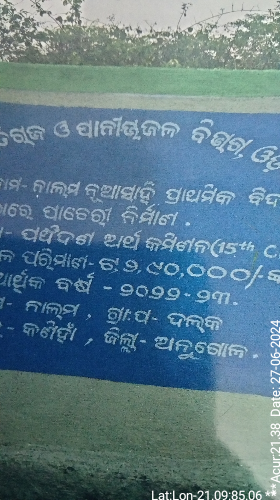 ଓ ପାନୀୟଜଳ ବିଭାଗ,
ନାଲମ ନୂଆସାହି ପ୍ରାଥମିକ
ପାଚେରୀ ନିର୍ମାଣ .
ପଞ୍ଚଦଶ ଅର୍ଥ କମିଶନ(15th
ପରିମାଣ- ଟ.୨,୯୦,୦୦୦/-
ଆର୍ଥିକ ବର୍ଷ - ୨୦୨୨-୨୩.
- ନାଲମ , ଗ୍ରା.ପ- ଦଲକ
- କଣିହାଁ , ଜିଲ୍ଲା- ଅନୁଗୋଳ .
Lat:Lon-21.09:85.06 *** Acur:21.38 Date: 27-06-2024